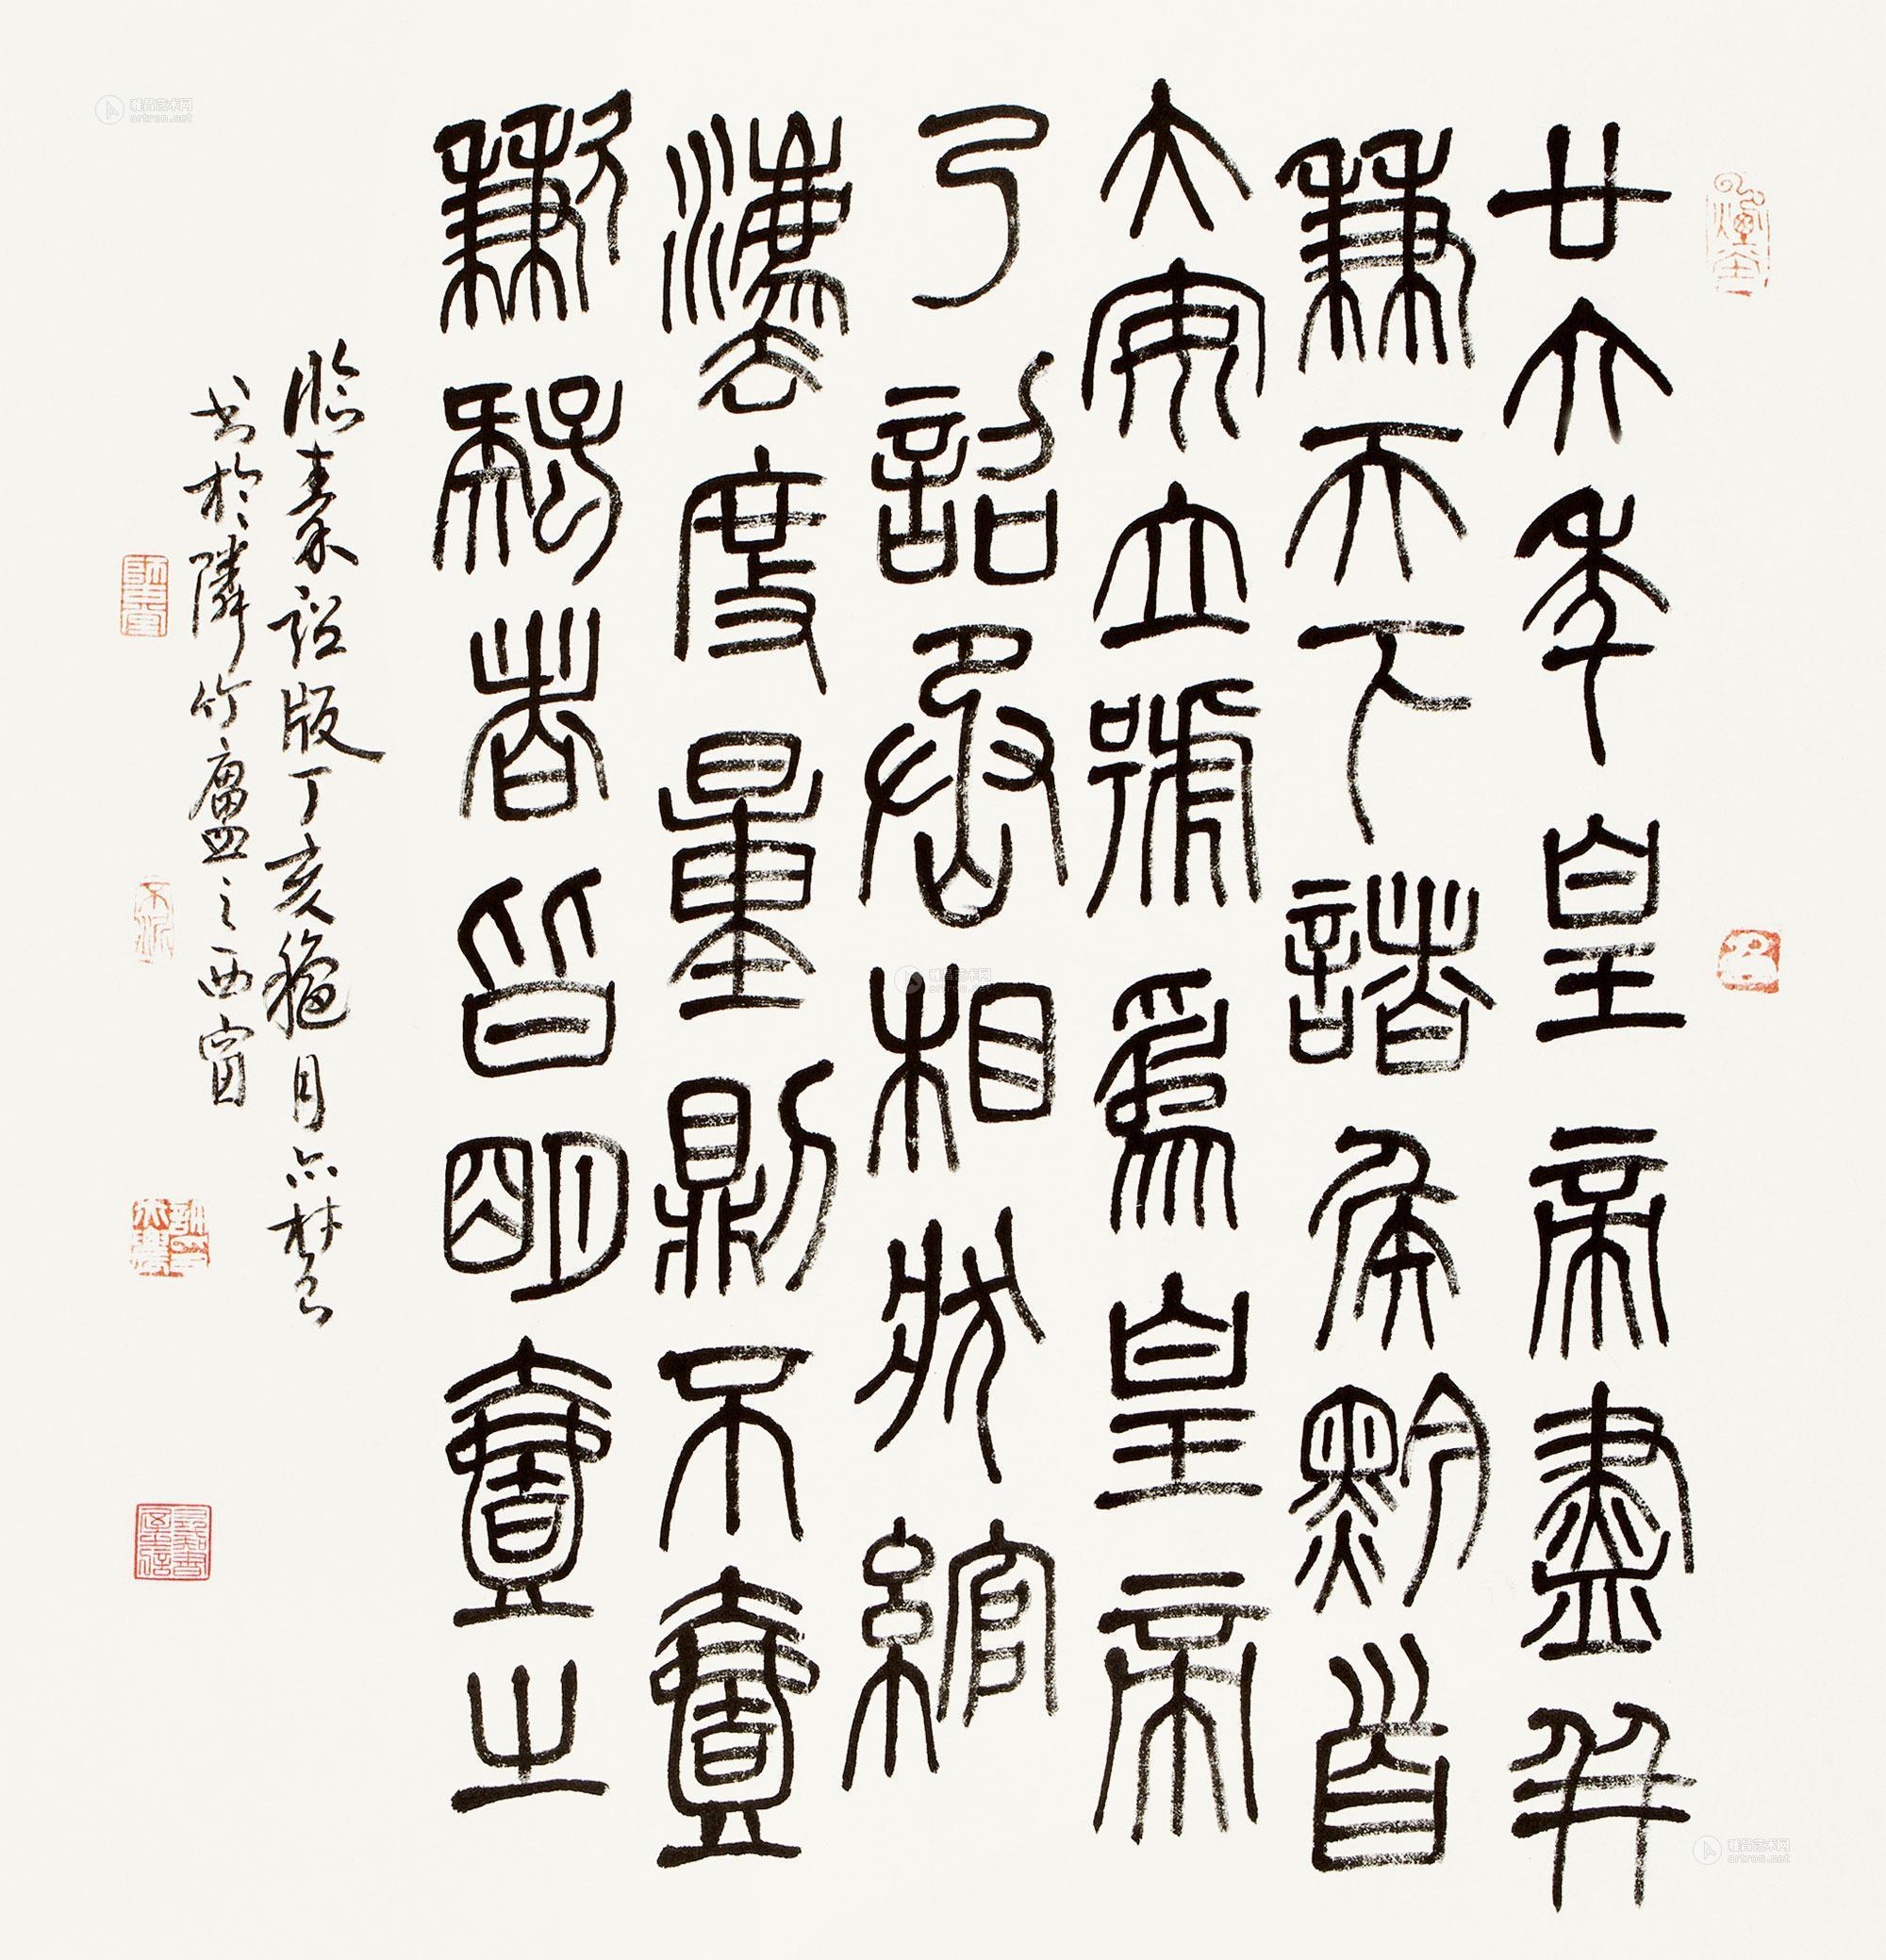 廿六年皇帝盡并
兼天下諸矦黔首
大安立號爲皇帝
乃詔丞相狀綰
灋度量則不壹
歉疑者皆明壹之
臨秦詔版丁亥穐月亦林
书於隣竹廬之西窗
雅昌艺术网
artron.net